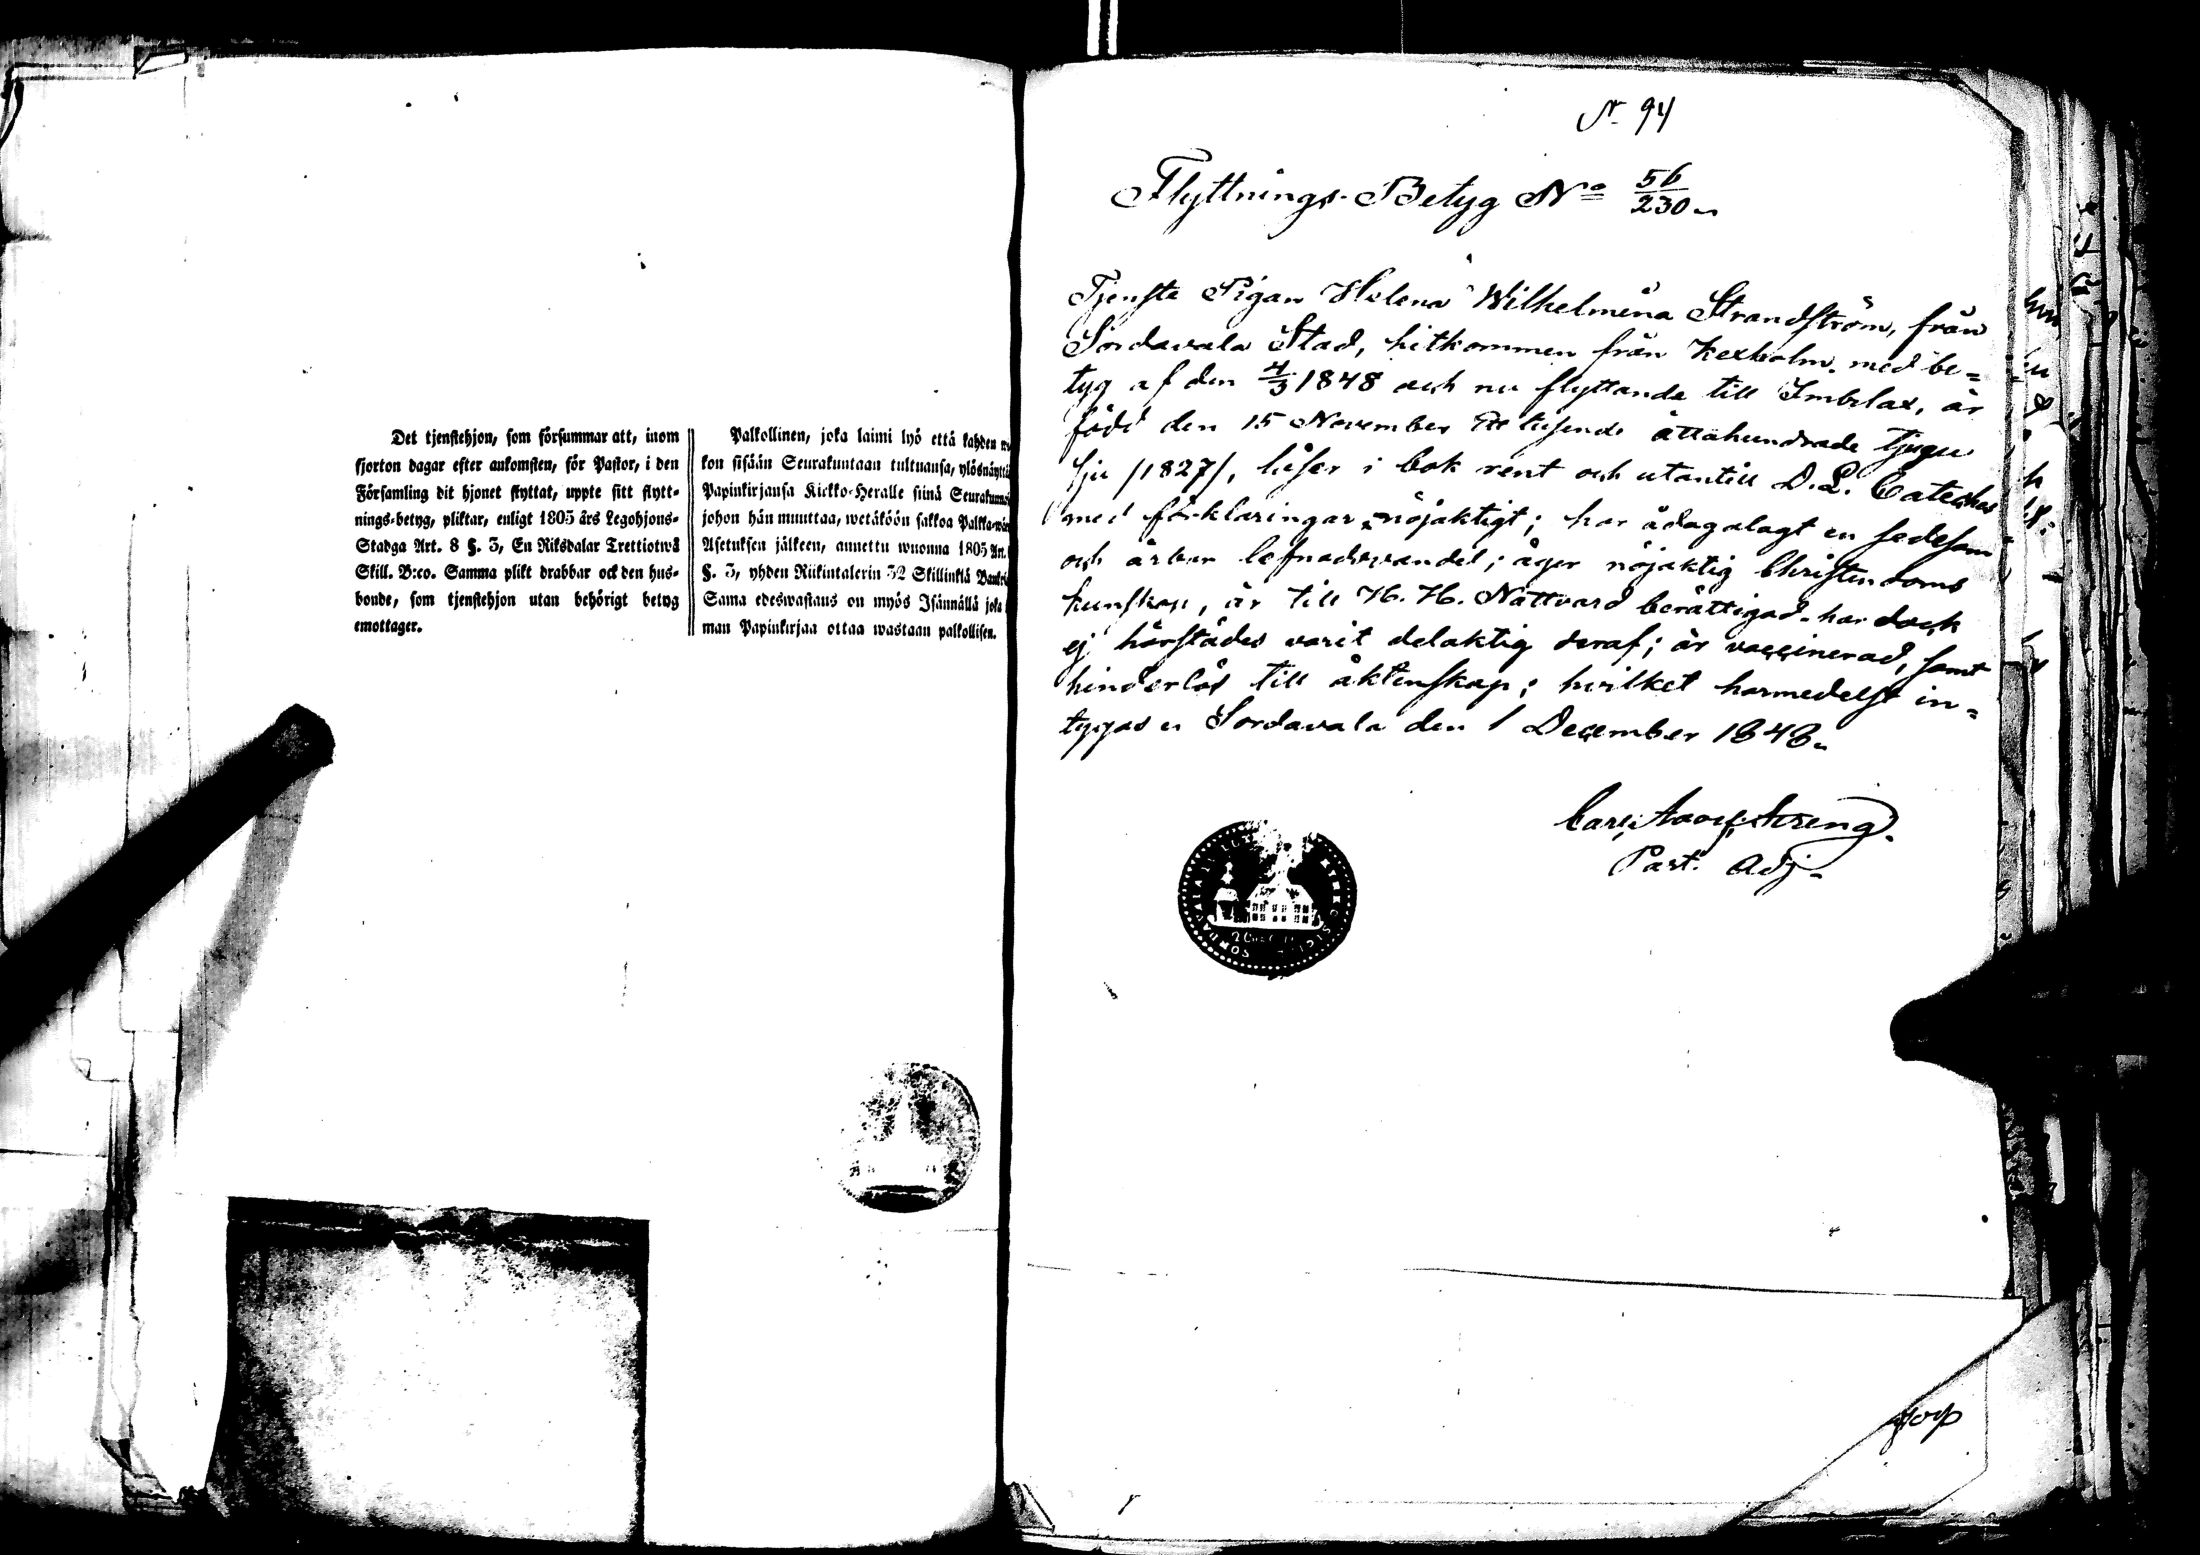 Det tjenstehjon, som försummar att, inom
fjorton dagar efter ankomsten, för Pastor, i den
Församling dit hjonet flyttat, uppte sitt flytt-
nings-betyg, pliktar, enligt 1805 års Legohjons-
Stadga Art. 8 §. 3, En Riksdalar Trettiotwå
Skill. B:co. Samma plikt drabbar ock den hus-
bonde, som tjenstehjon utan behörigt betyg
emottager.
Palkollinen, joka laimi lyö että kahden
kon sisään Seurakuntaan tultuansa, ylösnäyttä
Papinkirjansa Kirkko-Heralle siinä
johon hän muuttaa, wetäköön sakkoa
Asetuksen jälkeen, annettu wuonna 1805 Art.
§. 3, yhden Riikintalerin 32 Skillinkiä
Sama edeswastaus on myös Isännällä joka
man Papinkirjaa ottaa wastaan palkollisen.
N. 94
Flyttnings-Betyg No 56/230
Tjenste Pigan Helena Wilhelmina Strandström, från
Sordavala Stad, hitkommen från Kexholm med be=
tyg af den 4/3 1848 och nu flyttande till Imbilax, är
född den 15 November Ett tusende åttahundrade tjugu
sju /1827/, läser i bok rent och utantill D. L. Cateches
med förklaringar nöjaktigt; har ådagalagt en sedesam
och ärbar lefnadsvandel; äger nöjaktig Christendoms
kunskap, är till H. H. Nattvard berättigad, har dock
ej härstädes varit delaktig deraf; är vaccinerad, samt
hinderlös till äktenskap; hvilket harmedelst in=
tygas u Sordavala den 1 December 1848.
Carl
Past. Adj.